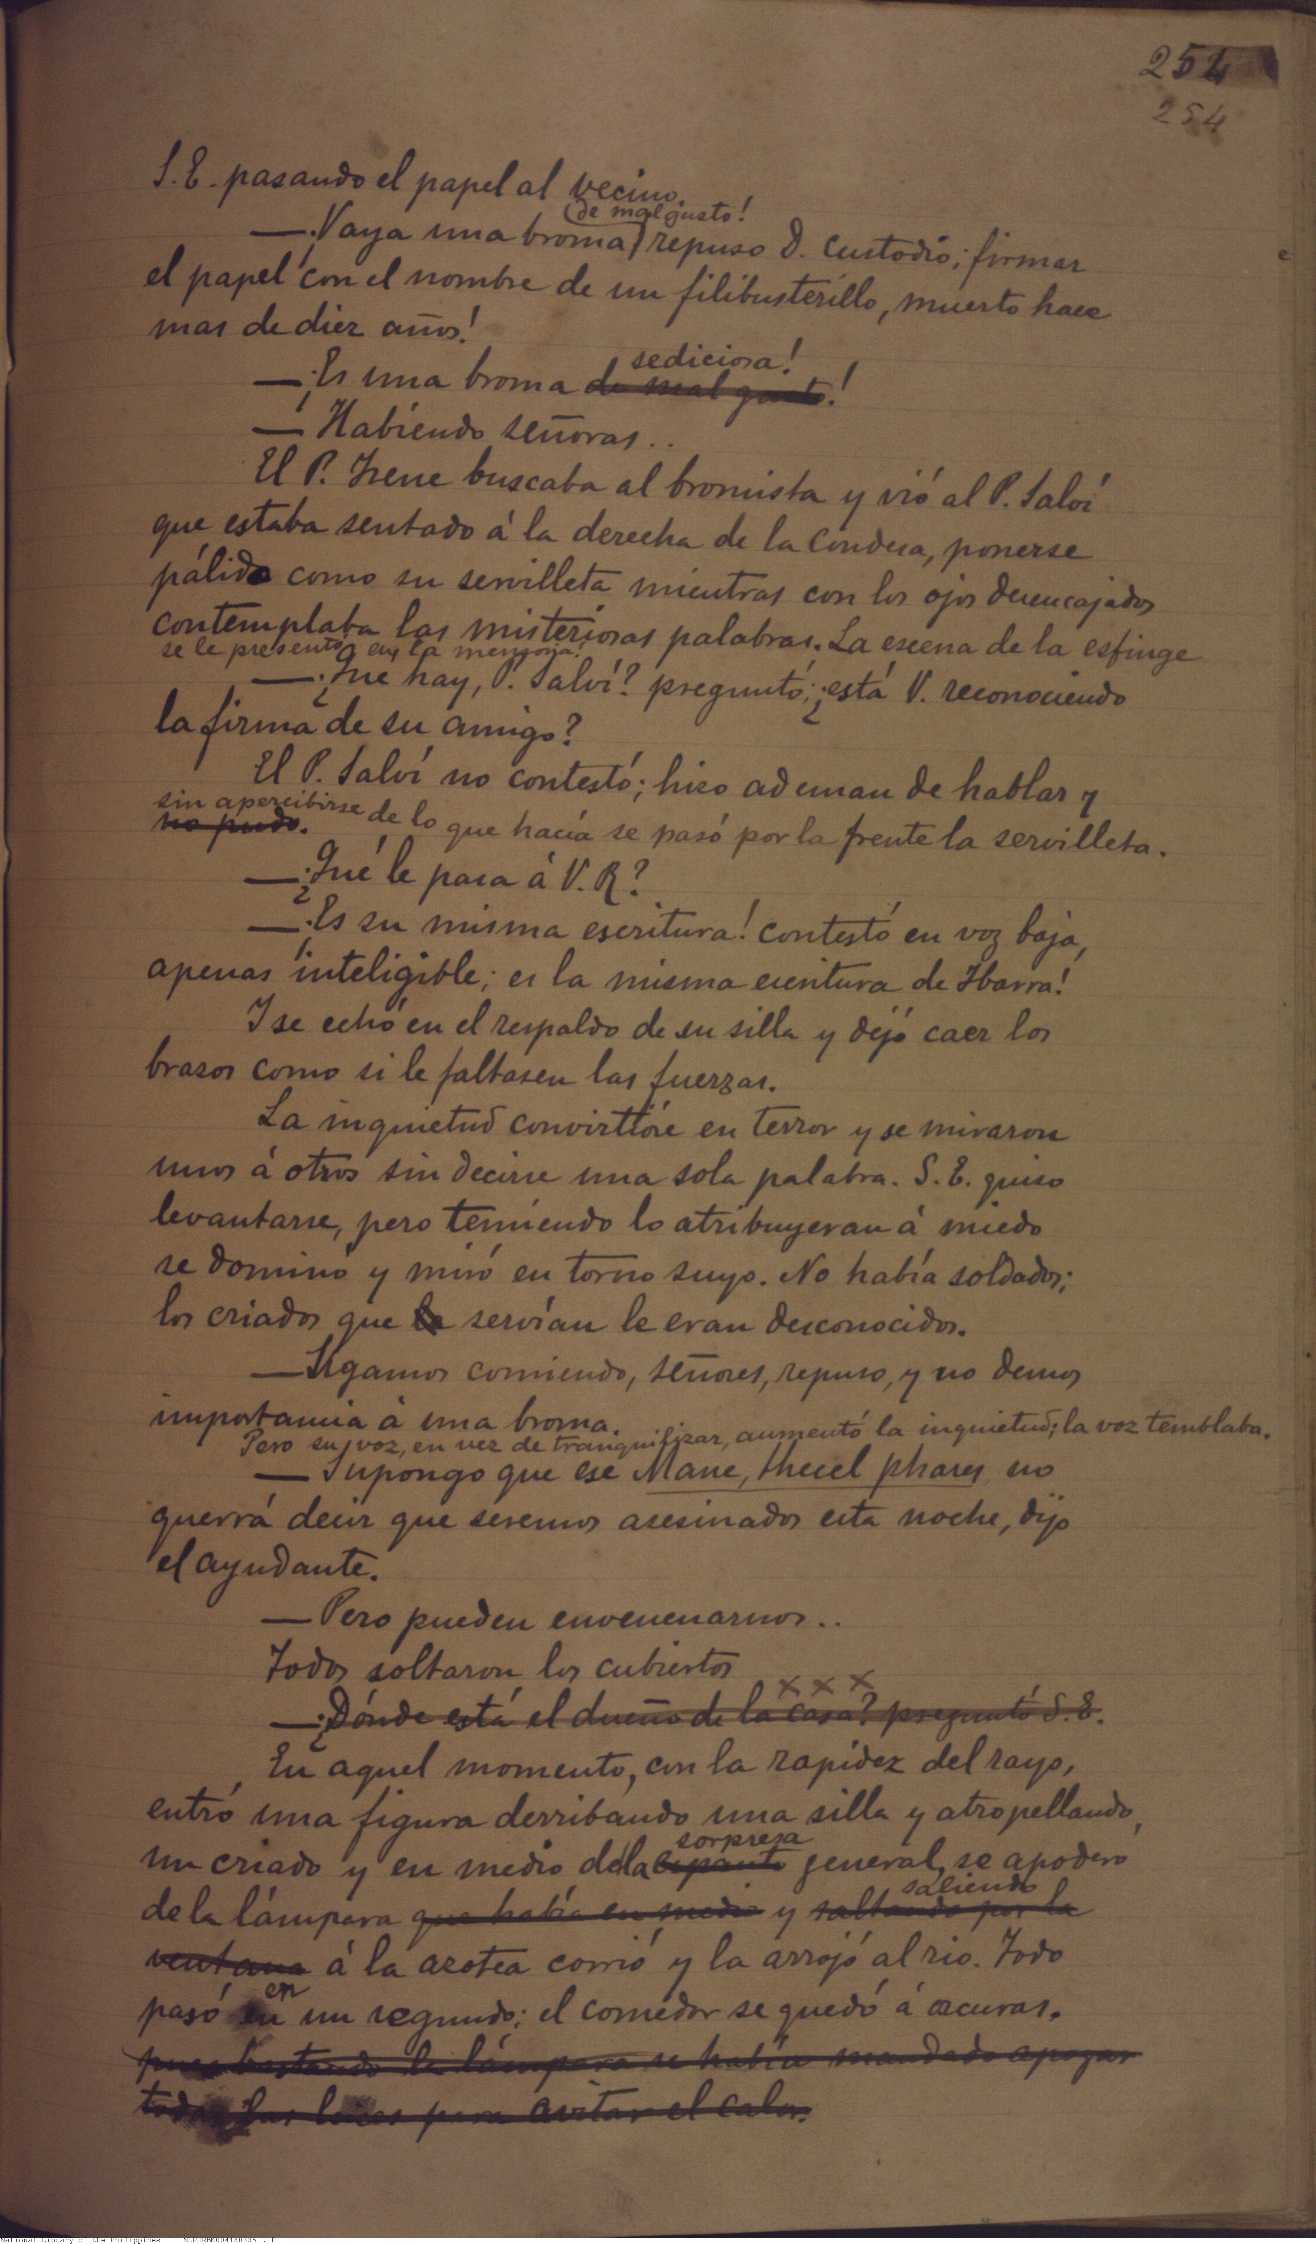 254
254
S. E. pasando el papel al vecino.
de mal gusto!
—¡Vaya una broma repuso D. Custodio; firmar
el papel con el nombre de un filibusterillo, muerto hace
mas de diez años!
sediciosa!
—¡Es una broma de mal gusto!
—Habiendo señoras..
El P. Irene buscaba al bromista y vió al P. Salví
que estaba sentado á la derecha de la Condesa, ponerse
pálido como su servilleta mientras con los ojos desencajados
contemplaba las misteriosas palabras. La escena de la esfinge
se le presentó en la memoria!
—¿Que hay, P. Salví? preguntó; ¿está V. reconociendo
la firma de su amigo?
El P. Salví no contestó; hizo ademan de hablar y
sin apercibirse de lo que hacía se pasó por la frente la servilleta.
no pudo.
—¿Qué le pasa á V. R?
—¡Es su misma escritura! contestó en voz baja,
apenas inteligible; es la misma escritura de Ibarra!
Y se echó en el respaldo de su silla y dejó caer los
brazos como si le faltasen las fuerzas.
La inquietud convirtióse en terror y se miraron
unos á otros sin decirse una sola palabra. S. E. quiso
levantarse, pero temiendo lo atribuyeran á miedo
se dominó y miró en torno suyo. No había soldados;
los criados que servían le eran desconocidos.
—Sigamos comiendo, señores, repuso, y no demos
importancia á una broma.
Pero su voz, en vez de tranquilizar, aumentó la inquietud; la voz temblaba.
—Supongo que ese Mane, thecel phares, no
querrá decir que seremos asesinados esta noche, dijo
el ayudante.
—Pero pueden envenenarnos..
Todos soltaron los cubiertos
x x x
—¿Dónde está el dueño de la casa? preguntó S. E.
En aquel momento, con la rapidez del rayo,
entró una figura derribando una silla y atropellando
sorpresa
un criado y en medio de la espanto general, se apodero
saliendo
de la lámpara que había en medio y saltando por la
ventana á la azotea corrió y la arrojó al rio. Todo
en
pasó en un segundo; el comedor se quedó á oscuras.
pues bastando la lámpara se había mandado apagar
todas las luces para evitar el calor.